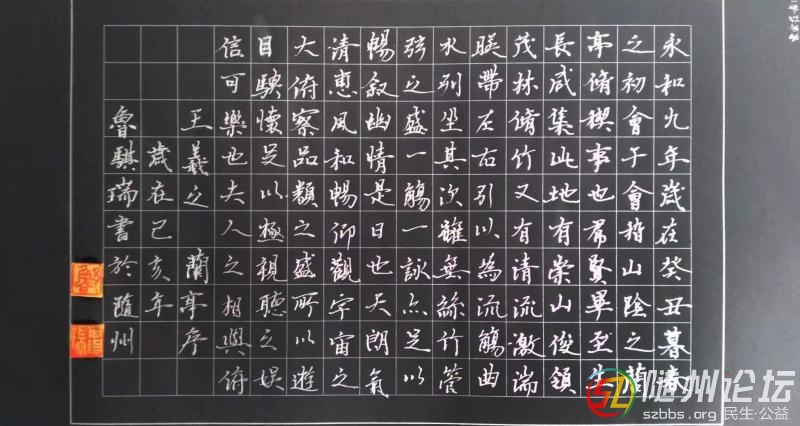 永和九年歲在癸丑暮春
之初會于會稽山陰之蘭
亭脩禊事也羣賢畢至少
長咸集此地有崇山俊領
茂林脩竹又有清流激湍
暎帶左右引以為流觴曲
水列坐其次雖無絲竹管
弦之盛一觴一詠亦足以
暢敘幽情是日也天朗氣
清惠風和暢仰觀宇宙之
大俯察品類之盛所以遊
目騁懷足以極視聽之娛
信可樂也夫人之相與俯
王羲之 蘭亭序
歲在己亥年
魯騏瑞書於隨州
随州论坛
szbbs.org 民生·公益